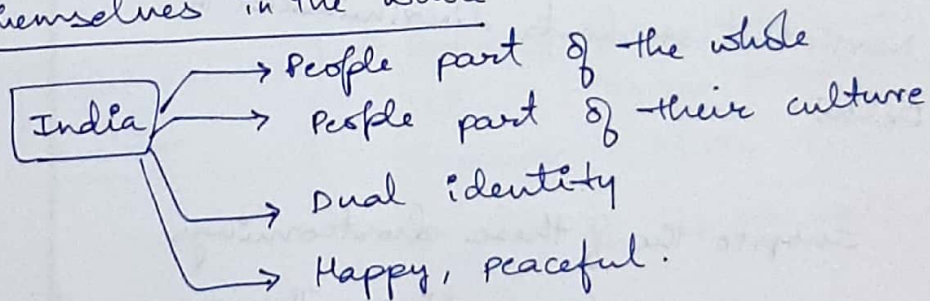 themselves in the
India
People part of the whole
People part of their culture
Dual identity
Happy, peaceful.